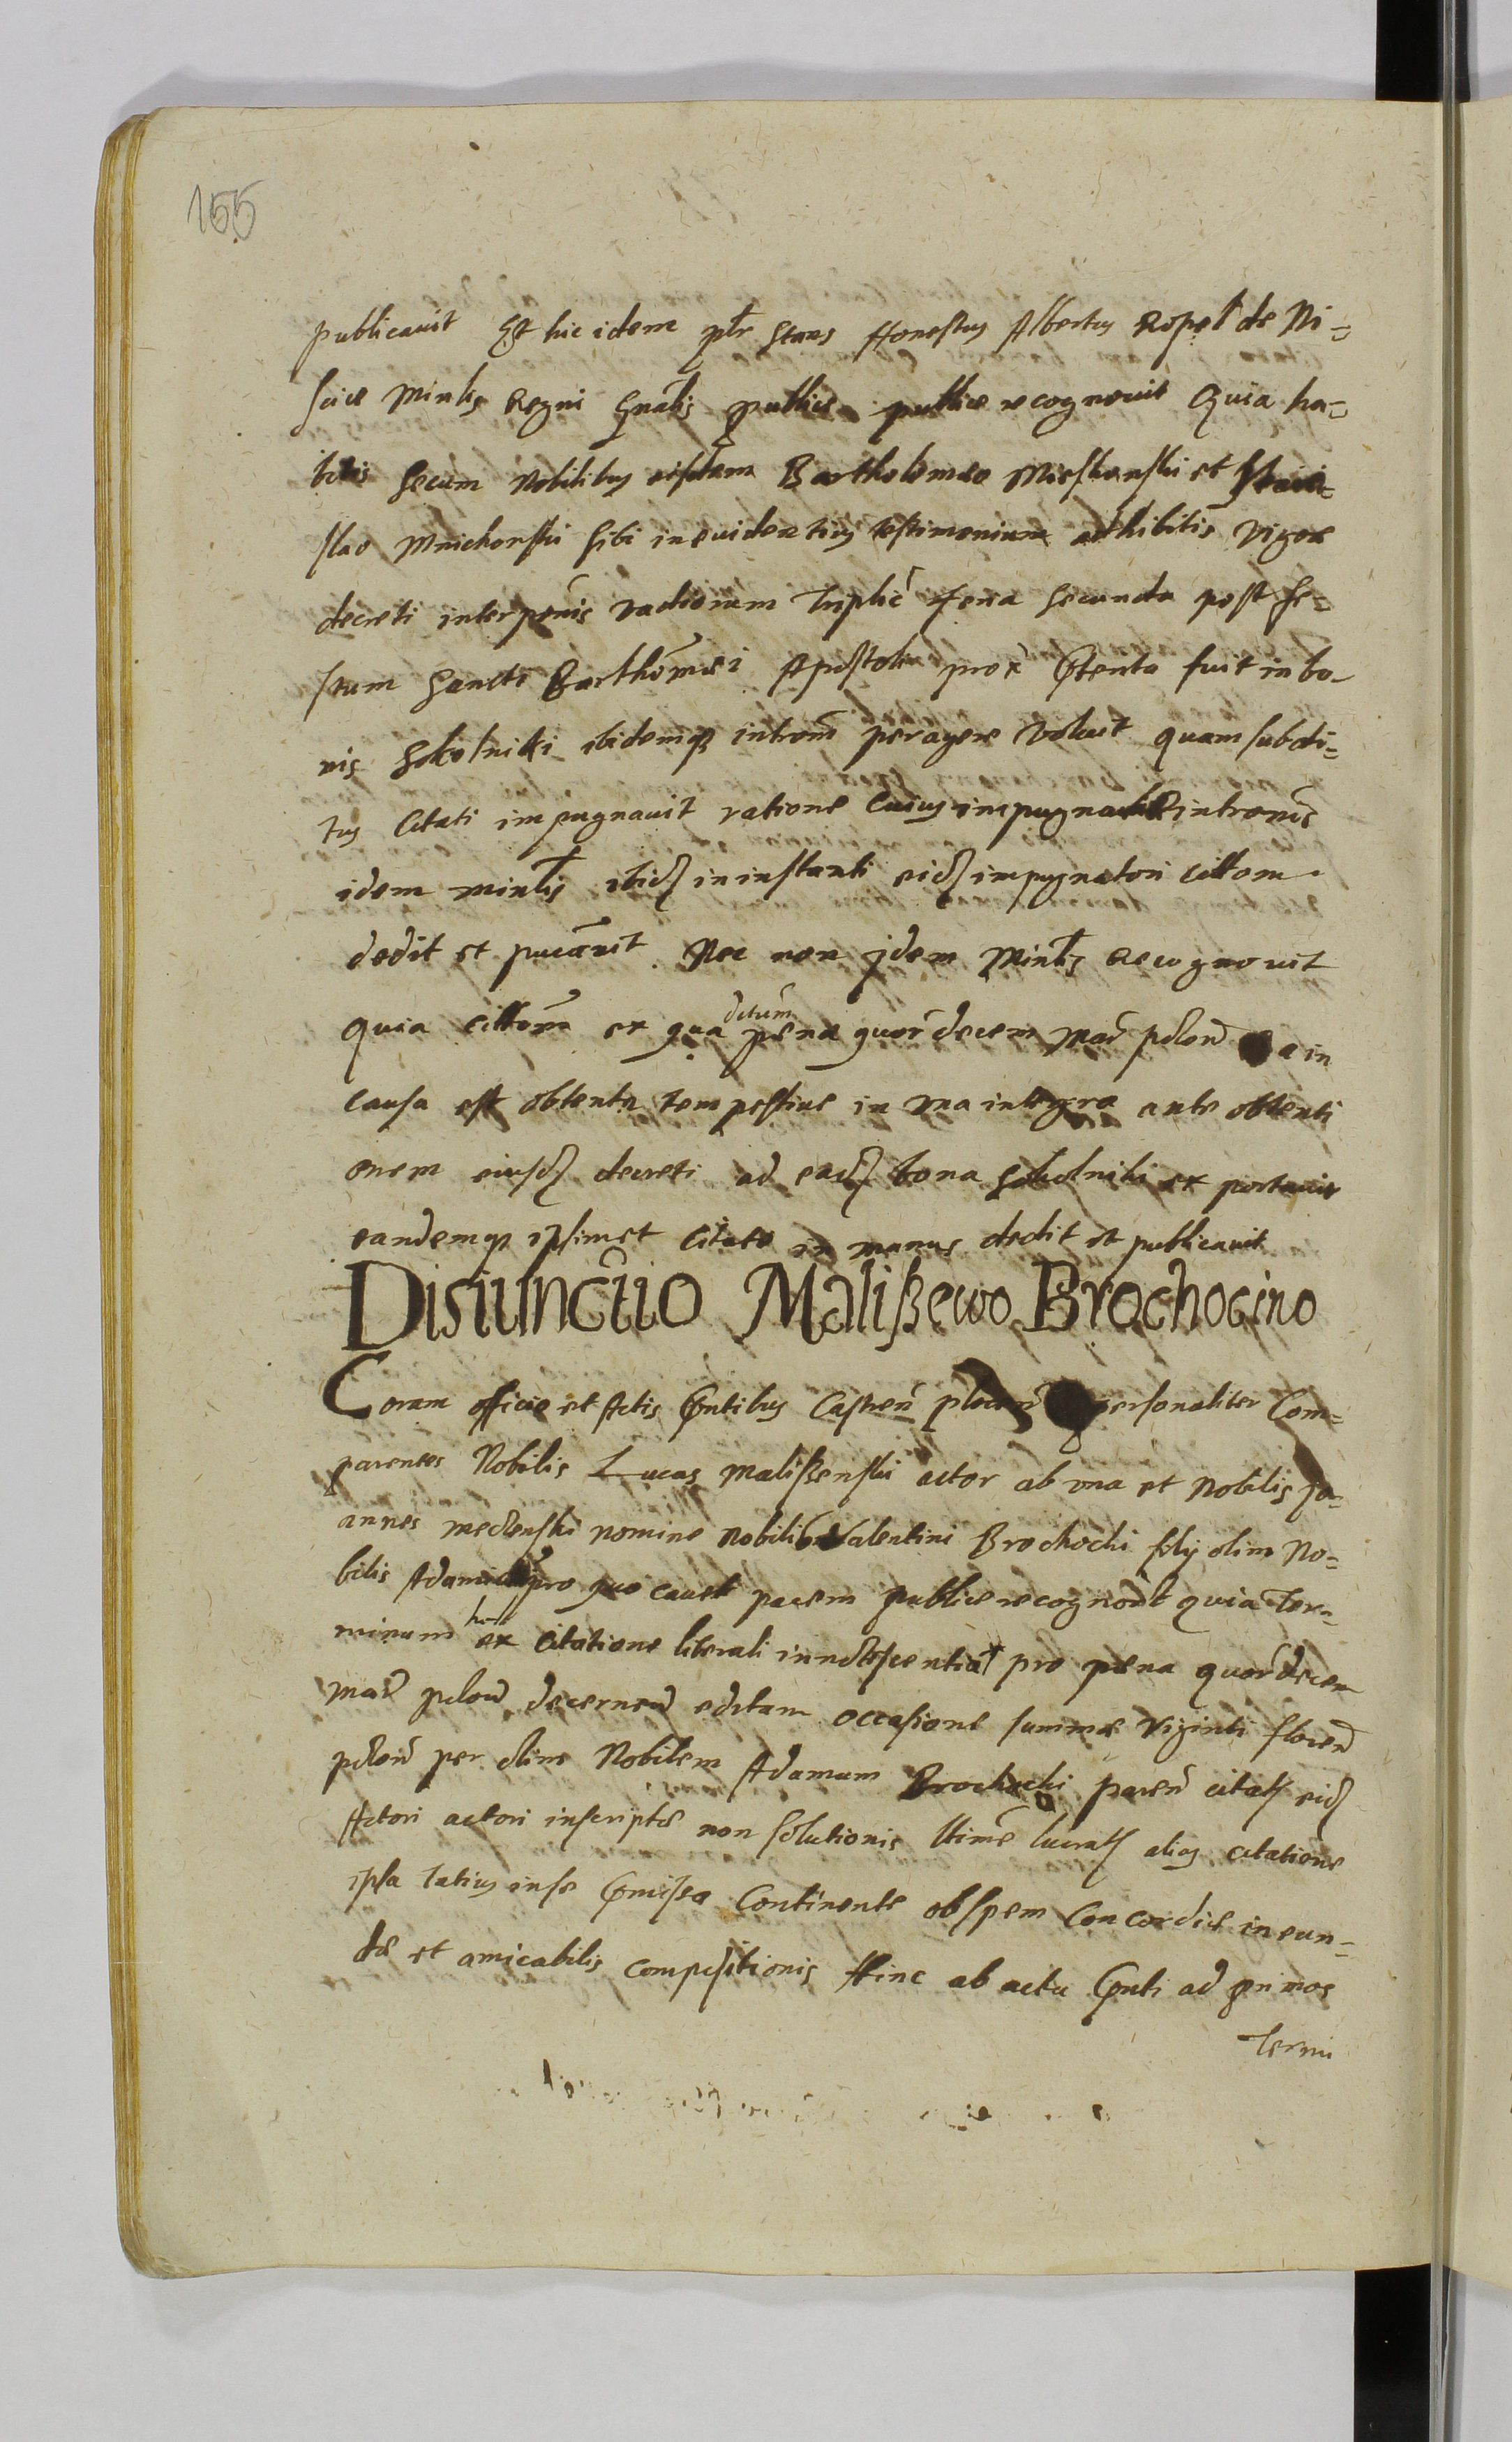 155
publicavit Et hic idem pñr stans Honestus Albertus Ropel de Ni=
scice Minłis Regni Gnãlis publice publice recognovit Quia ha=
bitis secum Nobilibus eisdem Bartholomeo Mieskonski et Stani=
slao Mnichowski sibi in evidentius testimonium adhibitis vigore
decreti interpoñis vadiorum triplic̃ feria secunda post fe=
stum Sancti Barthõmei Apostoli prox̃ pñterita fuit in bo-
nis Sokolniki ibidemq̃ introm̃ peragere voluit quam subdi=
tus Citati impugnavit ratione cuius impugnatæ introm̃s
idem minłis ibidz in instanti eidz impugnatori cittom̃
dedit et pucãvit Nec non idem Minłis recognovit
quia cittom̃ ex qua dictum pœna quor̃decem mar̃ poloñ ea in
causa est obtenta tempestive in via integra ante obtenti
onem eiusdz decreti ad eadz bona Sokolniki ex portavit
eandemq̃ ipsimet Citato in manus dedit et publicavit
Disiunctio Malißewo Brochocino
Coram officio et Actis pñtibus Castren̄ plocen̄ personaliter Com=
parentes Nobilis Lucas Malißewski actor ab una et Nobilis Jo=
annes Meclewski nomine Nobilis Valentini Brochocki filij olim No=
bilis Adami pro quo cavet pacem publice recognov̄t quia Ter=
minum hunc ex citatione literali innotescentiæ pro pœna quor̃decem
mar̃ polon̄ decernen̄ editam occasione summæ viginti floren̄
polon̄ per olim Nobilem Adamum Brochocki paren̄ citatz eidz
Actori actori inscriptæ non solutionis ltime lucratz alias citatione
ipsa latius in se pñmissa Continente ob spem Concordiæ ineun=
dæ et amicabilis compositionis Hinc ab actu pñti ad primos
Termi